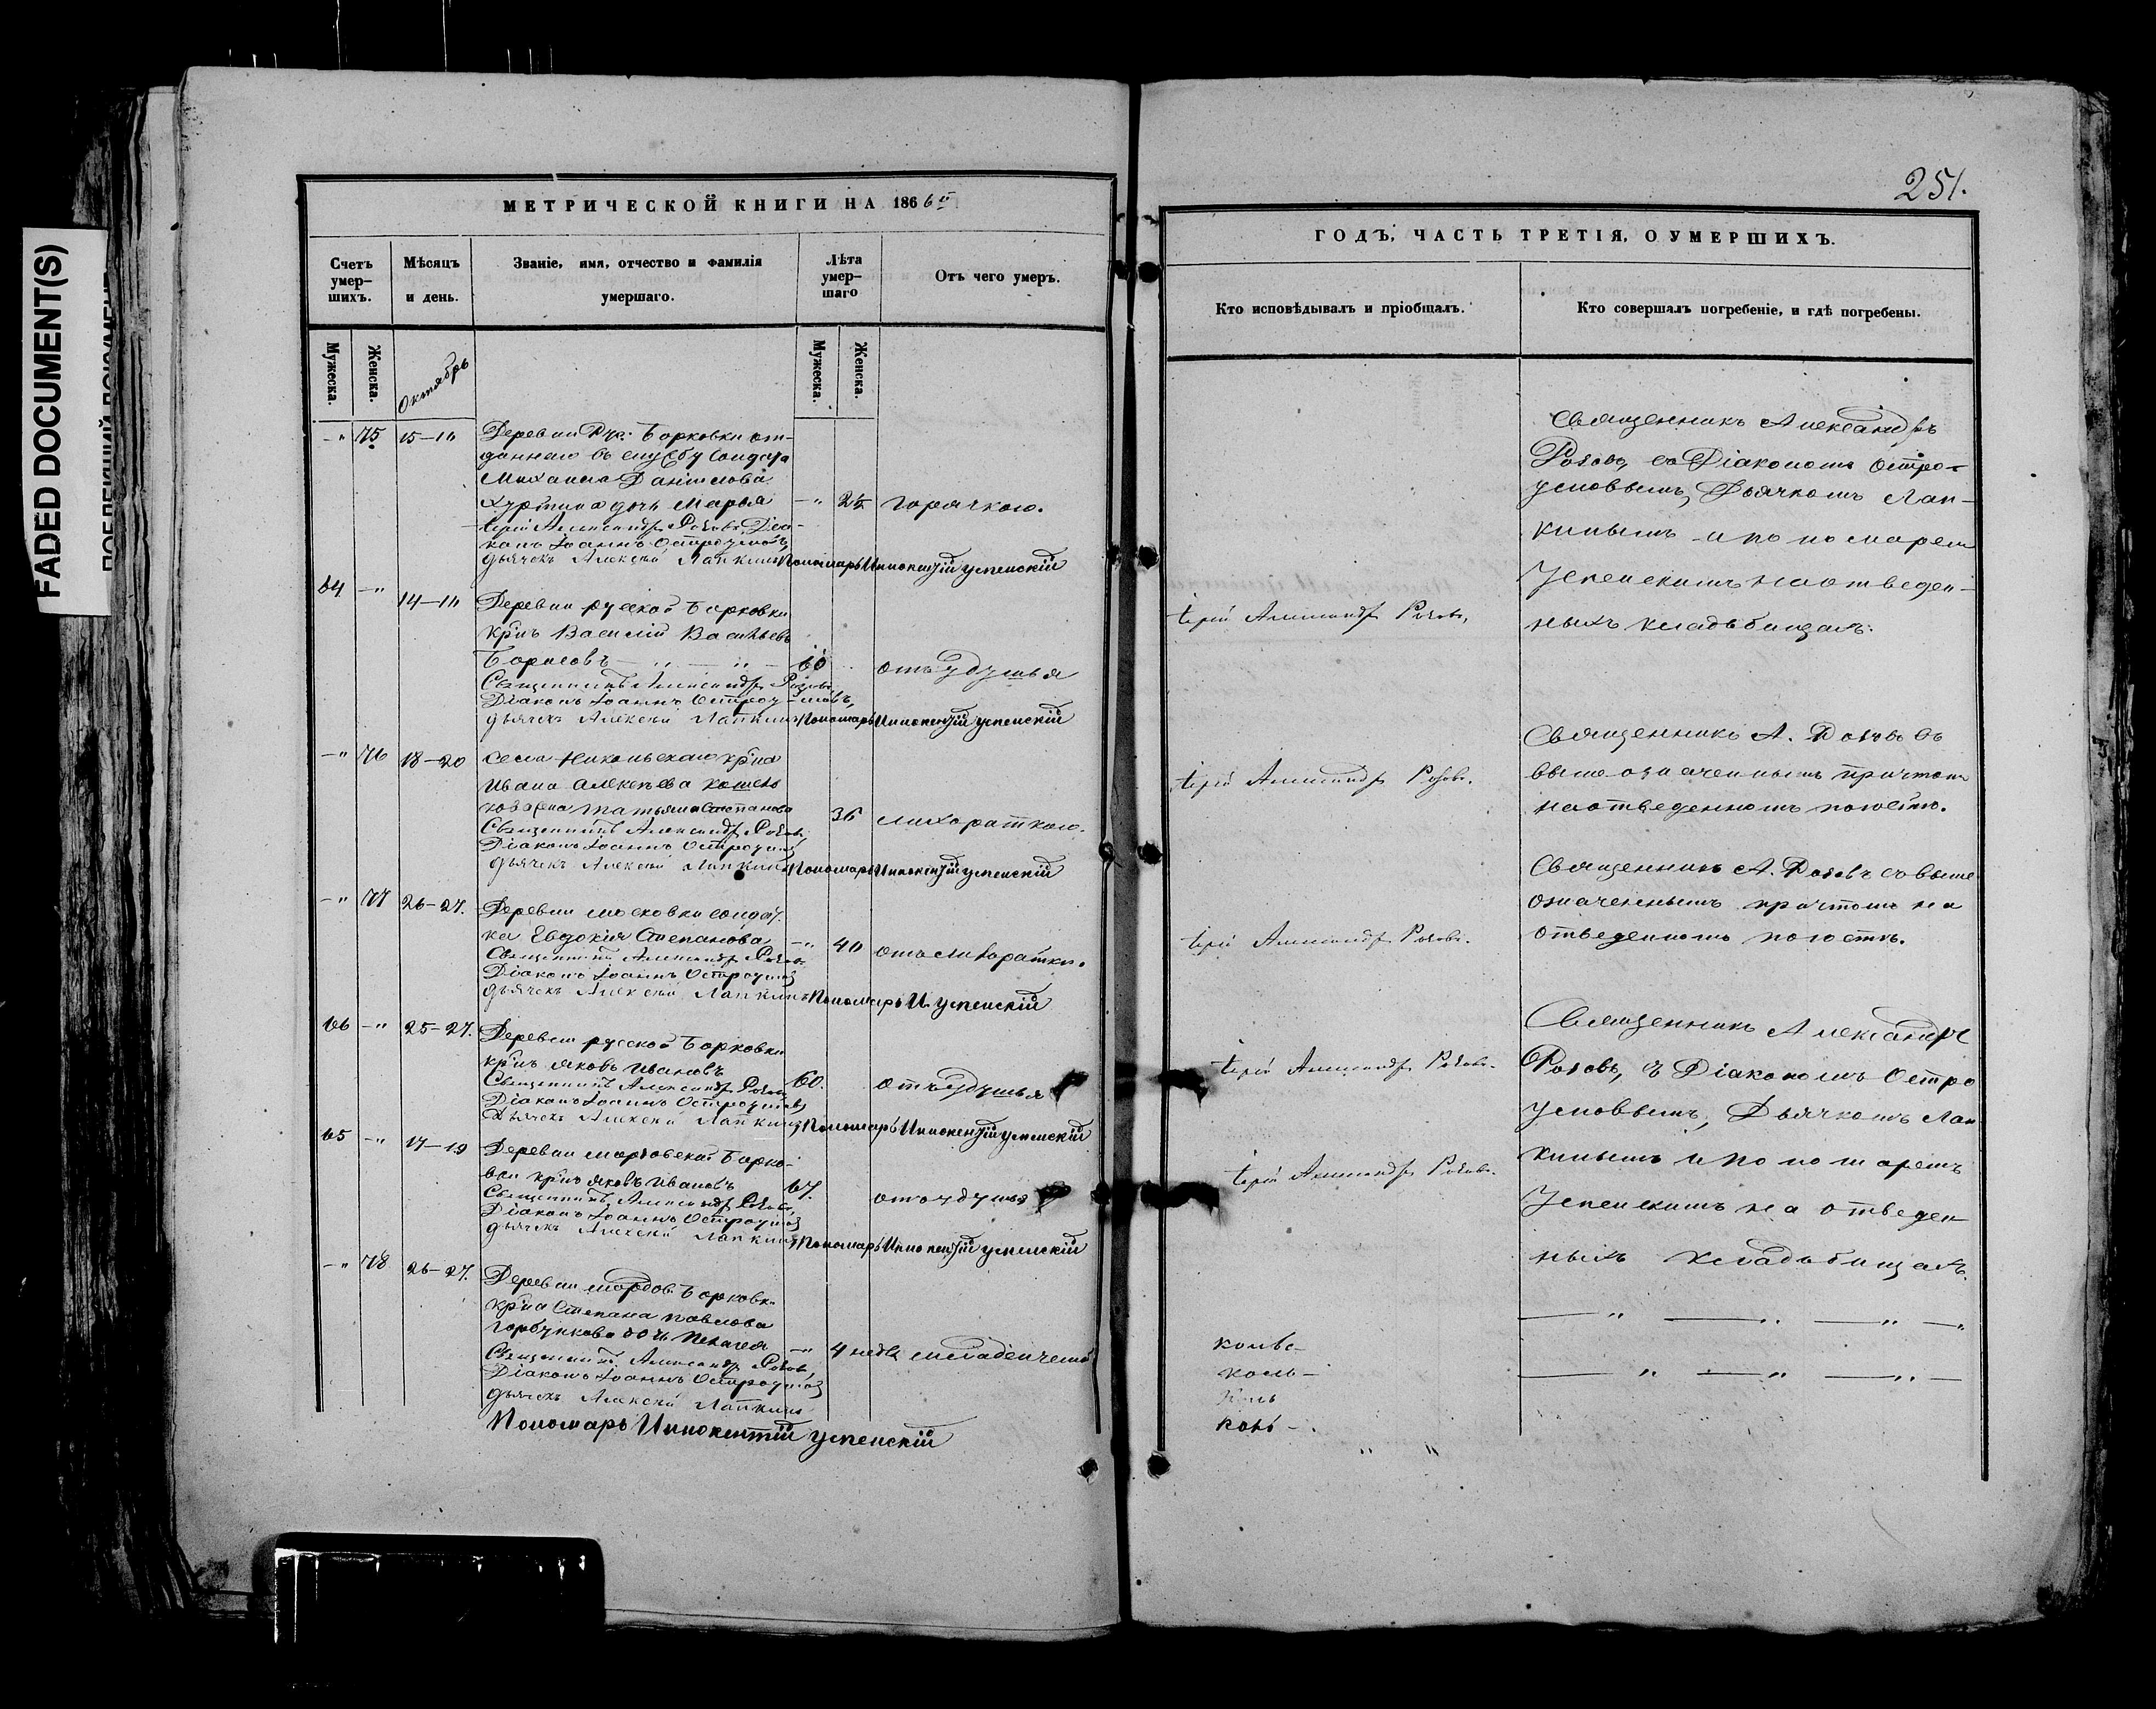 FADED DOCUMENT(S)
МЕТРИЧЕСКОЙ КНИГИ НА 1866 й
Счетъ умер-шихъ.
Мѣсяцъ и день.
Званіе, имя, отчество и фамилія умершаго.
Лѣта умер-шаго
Отъ чего умеръ.
Мужеска.
Женска.
Октябрь
Мужеска.
Женска.
-" 75 15-1
Деревни Рус: Борковки от-
даннаго въ службу солдата
Михаила Данилова
дочь Марья -" горячкою.
Іерей Александръ Розовъ Діа-
конъ Іоаннъ Остроумовъ,
дьячекъ Алексѣй Лапкинъ Пономарь Иннокентій Успенскій
64 -" 14-1
Деревни русской Борковки
кр'нъ Василій Васильевъ
Борисовъ — " — " — 60 отъ удушья
Священникъ Александръ Розовъ,
Діаконъ Іоаннъ Остроумовъ,
дьячекъ Алексѣй Лапкинъ Пономарь Иннокентій Успенскій
-" 76 18-20 села Никольскаго кр'на
Ивана Алексѣева
жена Татьяна Степанова 36 лихораткою.
Священникъ Александръ Розовъ
Діаконъ Іоаннъ Остроумовъ
дьячекъ Алексѣй Лапкинъ Пономарь Иннокентій Успенскій
-" 77 26-27. Деревни Московки солдат-
ка Евдокія Степанова -" 40 отъ лихоратки.
Священникъ Александръ Розовъ
Діаконъ Іоаннъ Остроумовъ
дьячекъ Алексѣй Лапкинъ Пономарь И. Успенскій
66 -" 25-27. Деревни русской Борковки
кр'нъ Яковъ Ивановъ 60. отъ удушья
Священникъ Александръ Розовъ
Діаконъ Іоаннъ Остроумовъ
Дьячекъ Алексѣй Лапкинъ Пономарь Иннокентій Успенскій
65 -" 17-19 Деревни мордовской Борко-
вки кр'нъ Яковъ Ивановъ 67. отъ удушья
Священникъ Александръ Розовъ,
Діаконъ Іоаннъ Остроумовъ
дьячекъ Алексѣй Лапкинъ Пономарь Иннокентій Успенскій
-" 78 26-27. Деревни мордов. Борковки
кр'на Степана Павлова
Горбункова дочь Пелагея -" 4 недѣ. младенчес
Священникъ Александръ Розовъ,
Діаконъ Іоаннъ Остроумовъ
дьячекъ Алексѣй Лапкинъ
Пономарь Иннокентій Успенскій
251.
ГОДЪ, ЧАСТЬ ТРЕТІЯ, О УМЕРШИХЪ.
Кто исповѣдывалъ и пріобщалъ.
Кто совершалъ погребеніе, и гдѣ погребены.
Священникъ Александръ
Розовъ, съ Діакономъ Остро-
умовымъ, Дьячкомъ Лап-
кинымъ и пономаремъ
Успенскимъ на отведен-
ныхъ кладбищахъ.
Іерей Александръ Розовъ,
Священникъ А. Розовъ съ
вышеозначеннымъ причтомъ
на отведенномъ погостѣ.
Іерей Александръ Розовъ.
Священникъ А. Розовъ съ выше
означеннымъ причтомъ на
отведенномъ погостѣ.
Іерей Александръ Розовъ.
Священникъ Александръ
Розовъ, съ Діакономъ Остро
умовымъ, Дьячкомъ Лап
кинымъ и пономаремъ
Успенскимъ на отведен
ныхъ кладбищахъ.
Іерей Александръ Розовъ.
Іерей Александръ Розовъ.